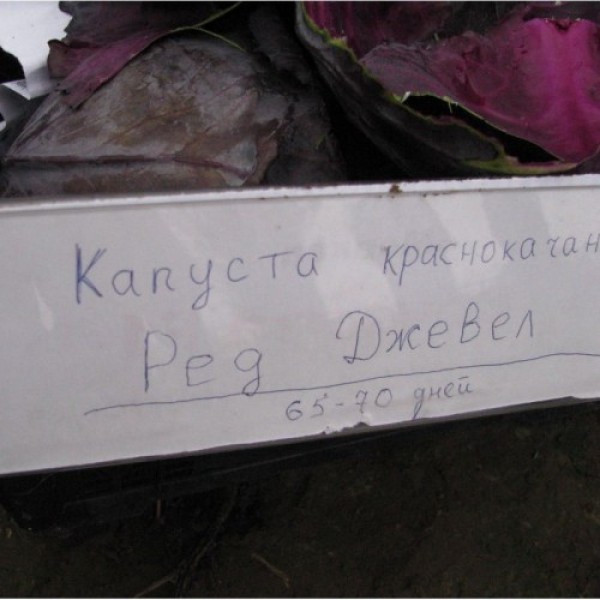 Капуста краснокачан
Ред Джевел
65-70 дней